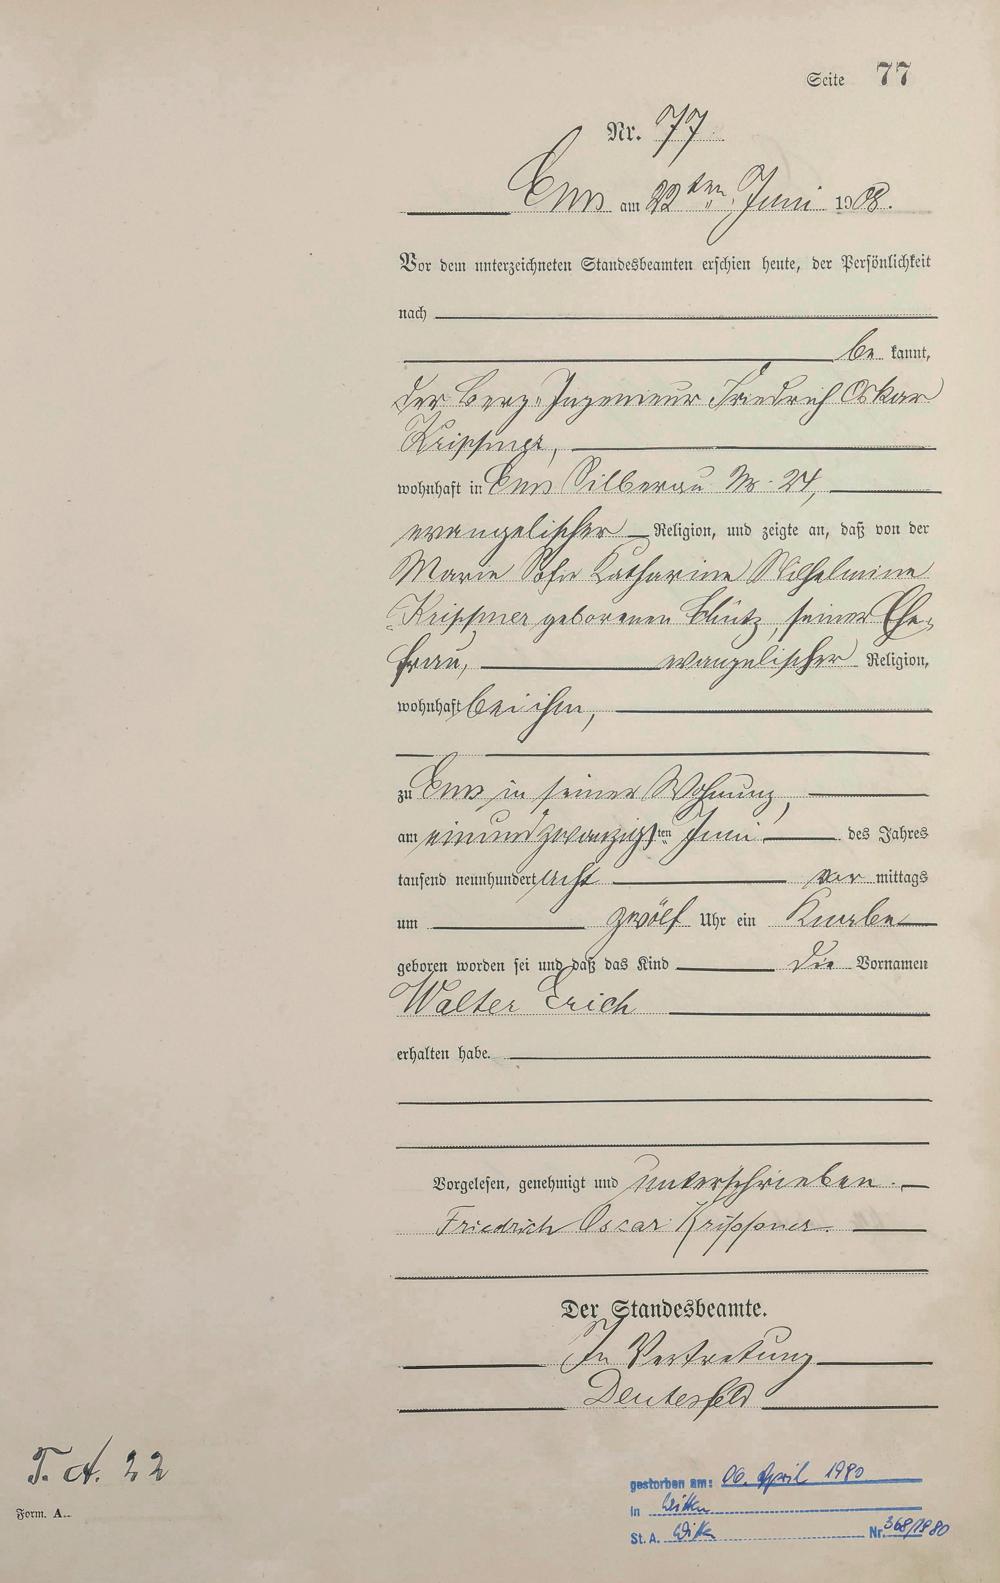 Seite 77
Nr. 77
Ems am 22ten Juni 1908.
Vor dem unterzeichneten Standesbeamten erschien heute, der Persönlichkeit
nach
be kannt,
der Berg-Ingenieur Friedrich Oskar
Krippner,
wohnhaft in Ems Silberau Nr. 24,
evangelischer Religion, und zeigte an, daß von der
Marie Sofie Katharine Wilhelmine
Krippner geborenen Blütz, seiner Ehe-
frau, evangelischer Religion,
wohnhaft bei ihm,
zu Ems in seiner Wohnung,
am einundzwanzigsten Juni des Jahres
tausend neunhundert acht vor mittags
um zwölf Uhr ein Knabe
geboren worden sei und daß das Kind die Vornamen
Walter Erich
erhalten habe.
Vorgelesen, genehmigt und unterschrieben.
Friedrich Oscar Krippner.
Der Standesbeamte.
In Vertretung
Deutesfeld
T. A. 22
Form. A..
gestorben am: 06. April 1980
in Witten
St. A. Witten Nr. 368/1980